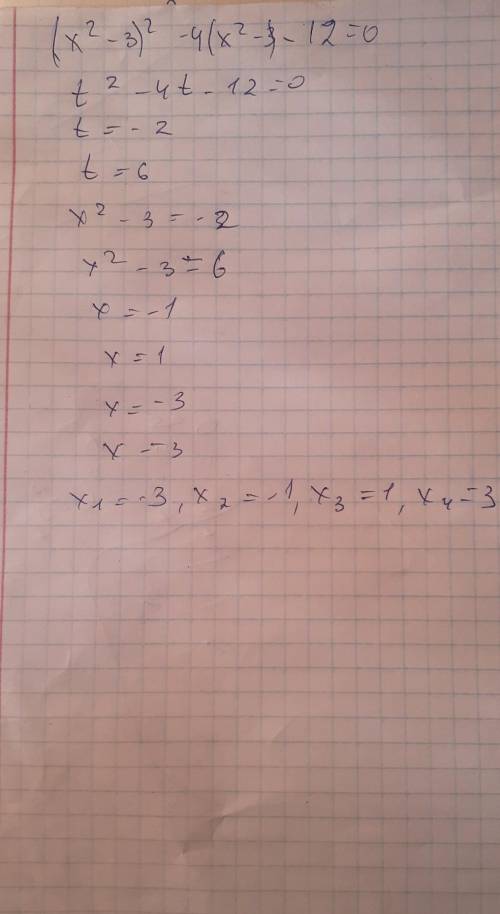 (x² - 3)² - 4(x² - 3) - 12 = 0
t² - 4t - 12 = 0
t = - 2
t = 6
x² - 3 = - 2
x² - 3 = 6
x = - 1
x = 1
x = - 3
x = 3
x₁ = - 3, x₂ = - 1, x₃ = 1, x₄ = 3